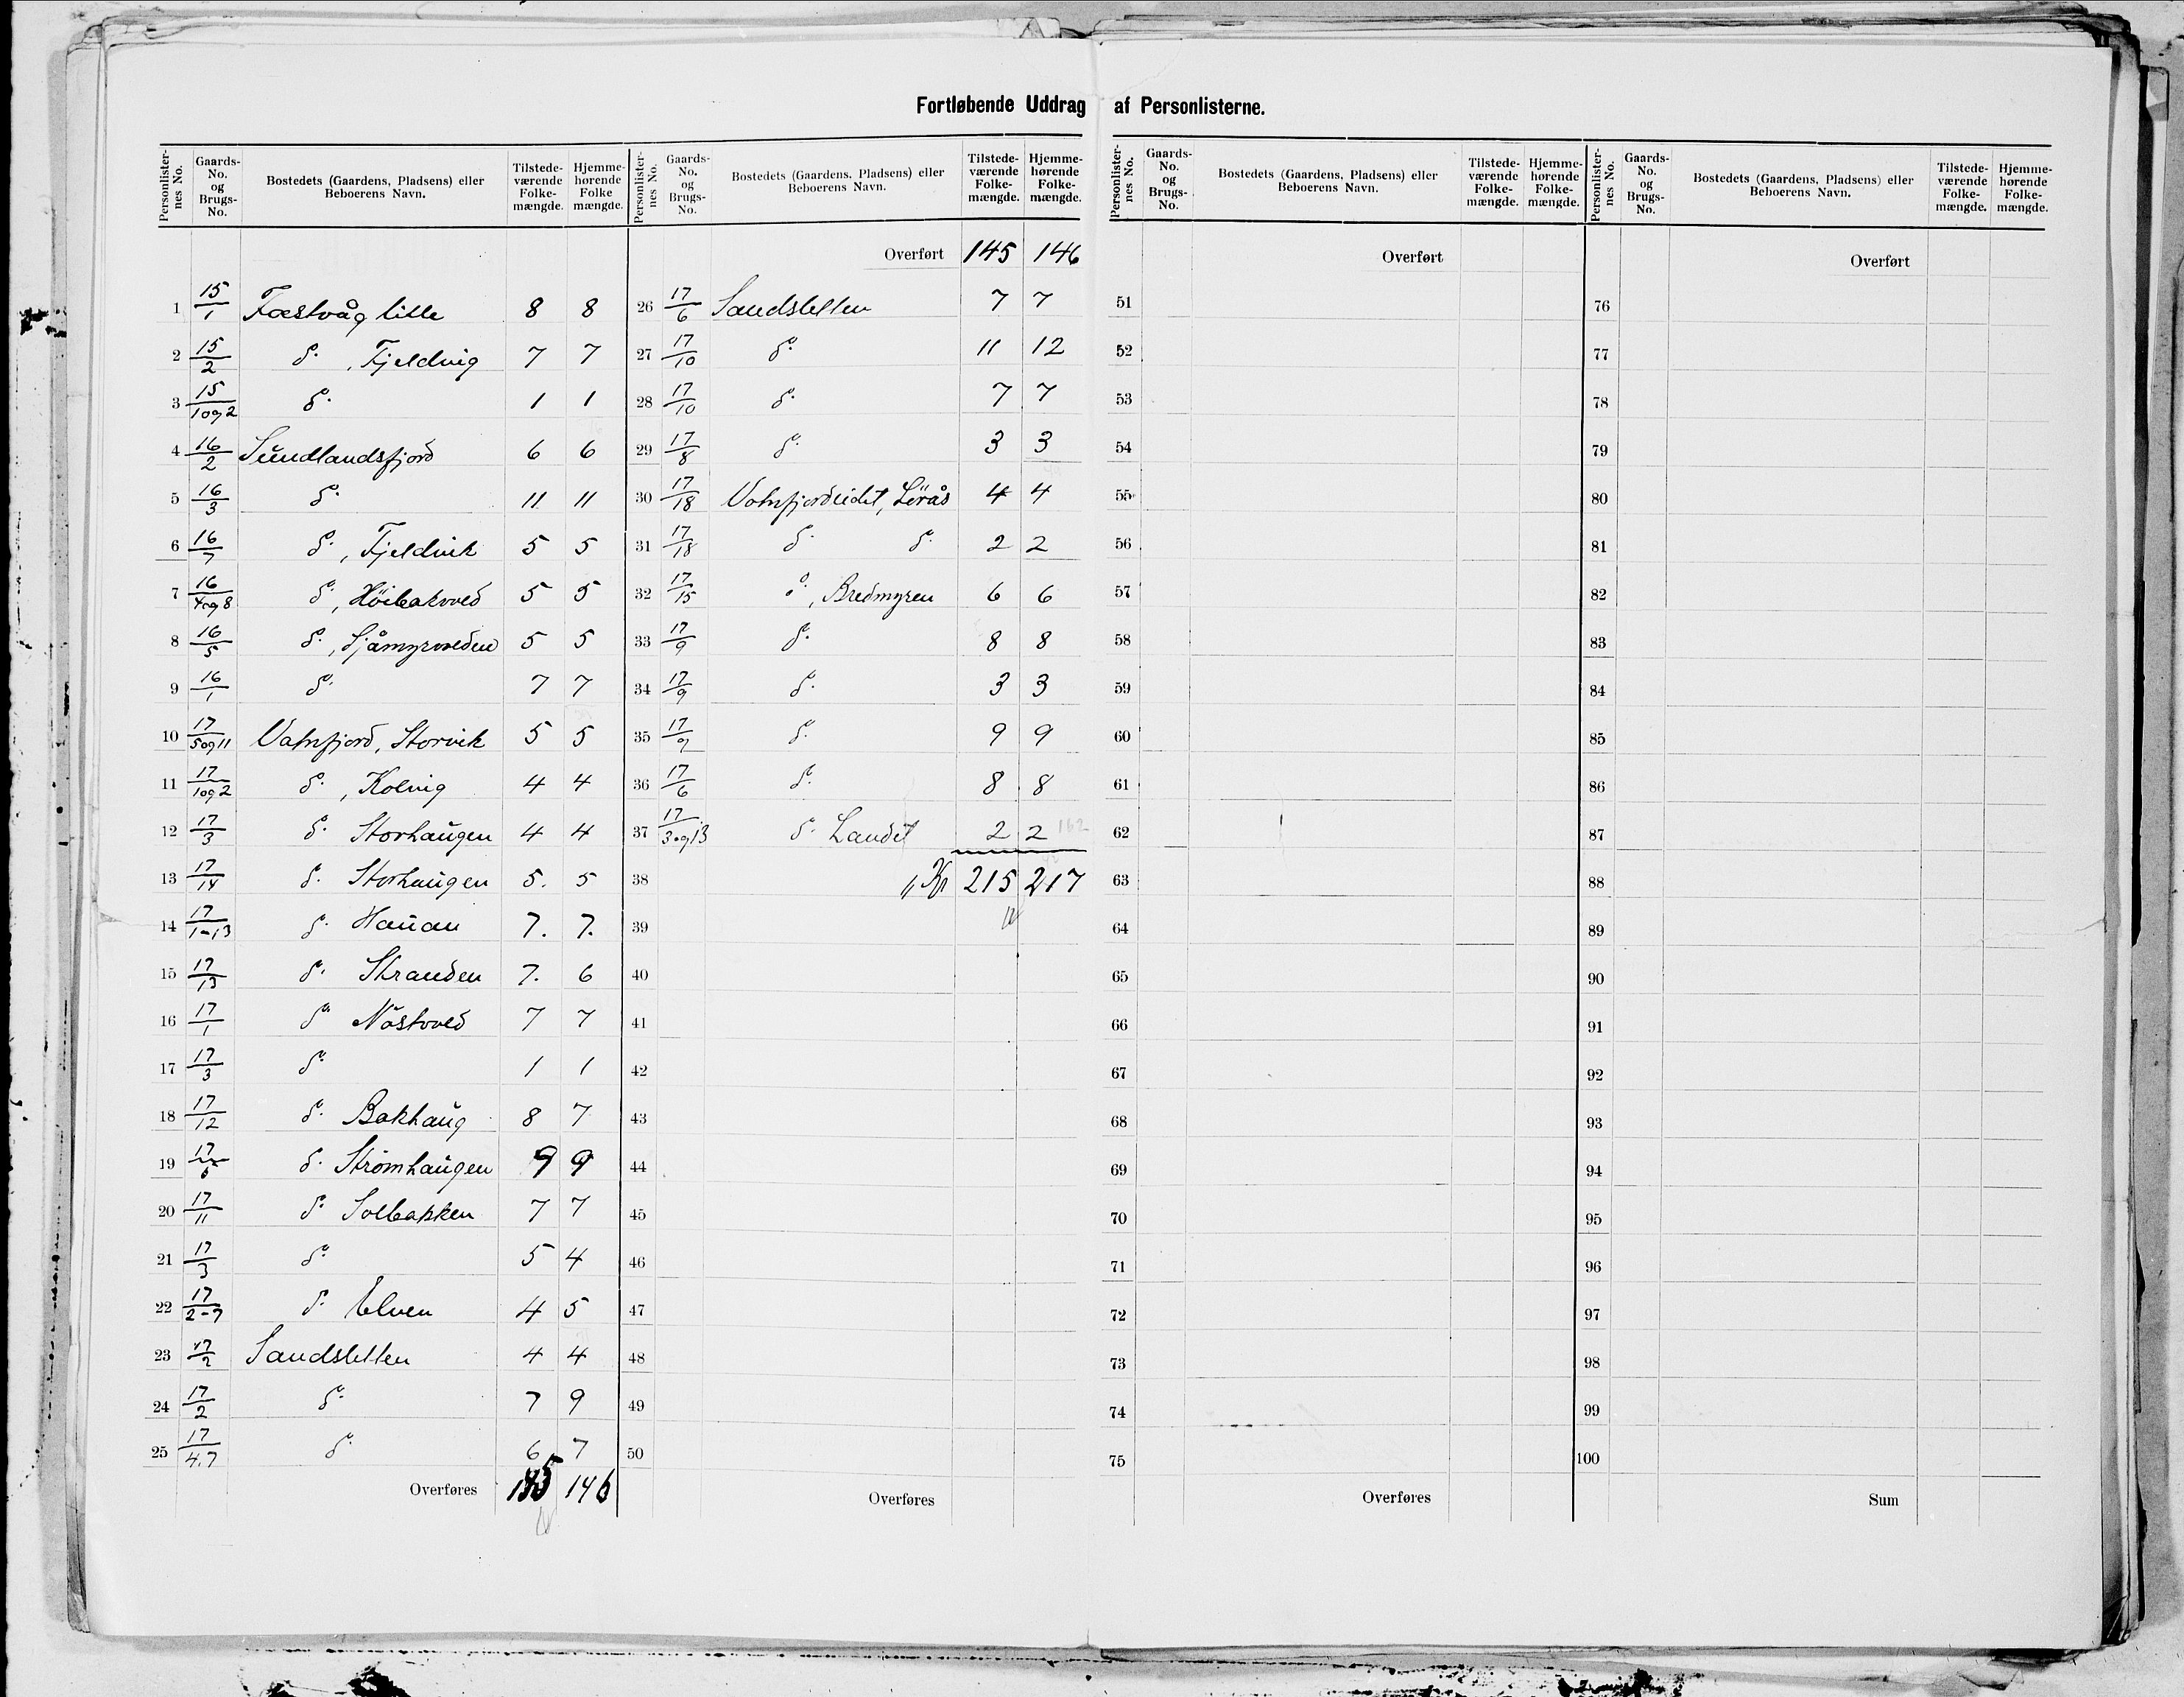 Fortløbende Uddrag af Personlisterne.
Personlisternes No. | Gaards-No. og Brugs-No. | Bostedets (Gaardens, Pladsens) eller Beboerens Navn. | Tilstedeværende Folkemængde. | Hjemmehørende Folkemængde.
1 15/1 Fæstvåg lille 8 8
2 15/2 do. , Fjeldvig 7 7
3 15/1og2 do. 1 1
4 16/2 Sundlandsfjord 6 6
5 16/3 do. 11 11
6 16/7 do. , Fjeldvik 5 5
7 16/4og8 do. , Höibakvved 5 5
8 16/5 do. , Sjåmyrveden 5 5
9 16/1 do. 7 7
10 17/5og11 Vatnfjord, Storvik 5 5
11 17/1og2 do. , Kolvig 4 4
12 17/3 do. Storhaugen 4 4
13 17/14 do. Storhaugen 5. 5
14 17/1-13 do. Hauan 7. 7.
15 17/13 do. Stranden 7. 6
16 17/1 do. Nöstved 7 7
17 17/3 do. 1 1
18 17/12 do. Bakhaug 8 7
19 17/5 do. Strömhaugen 9 9
20 17/11 do. Solbakken 7 7
21 17/3 do. 5 4
22 17/2-7 do. Elven 4 5
23 17/2 Sandsletten 4 4
24 17/2 do. 7 9
25 17/4.7 do. 6 7
Overføres 145 146
Personlisternes No. | Gaards-No. og Brugs-No. | Bostedets (Gaardens, Pladsens) eller Beboerens Navn. | Tilstedeværende Folkemængde. | Hjemmehørende Folkemængde.
Overført 145 146
26 17/6 Sandsletten 7 7
27 17/10 do. 11 12
28 17/10 do. 7 7
29 17/8 do. 3 3
30 17/18 Vatnfjordeidet, Lörås 4 4
31 17/18 do. do. 2 2
32 17/15 do. , Bredmyren 6 6
33 17/9 do. 8 8
34 17/9 do. 3 3
35 17/9 do. 9 9
36 17/6 do. 8 8
37 17/3og13 do. Landet 2 2 162
38 215 217
39
40
41
42
43
44
45
46
47
48
49
50
Overføres
Personlisternes No. | Gaards-No. og Brugs-No. | Bostedets (Gaardens, Pladsens) eller Beboerens Navn. | Tilstedeværende Folkemængde. | Hjemmehørende Folkemængde.
Overført
51
52
53
54
55
56
57
58
59
60
61
62
63
64
65
66
67
68
69
70
71
72
73
74
75
Overføres
Personlisternes No. | Gaards-No. og Brugs-No. | Bostedets (Gaardens, Pladsens) eller Beboerens Navn. | Tilstedeværende Folkemængde. | Hjemmehørende Folkemængde.
Overført
76
77
78
79
80
81
82
83
84
85
86
87
88
89
90
91
92
93
94
95
96
97
98
99
100
Sum